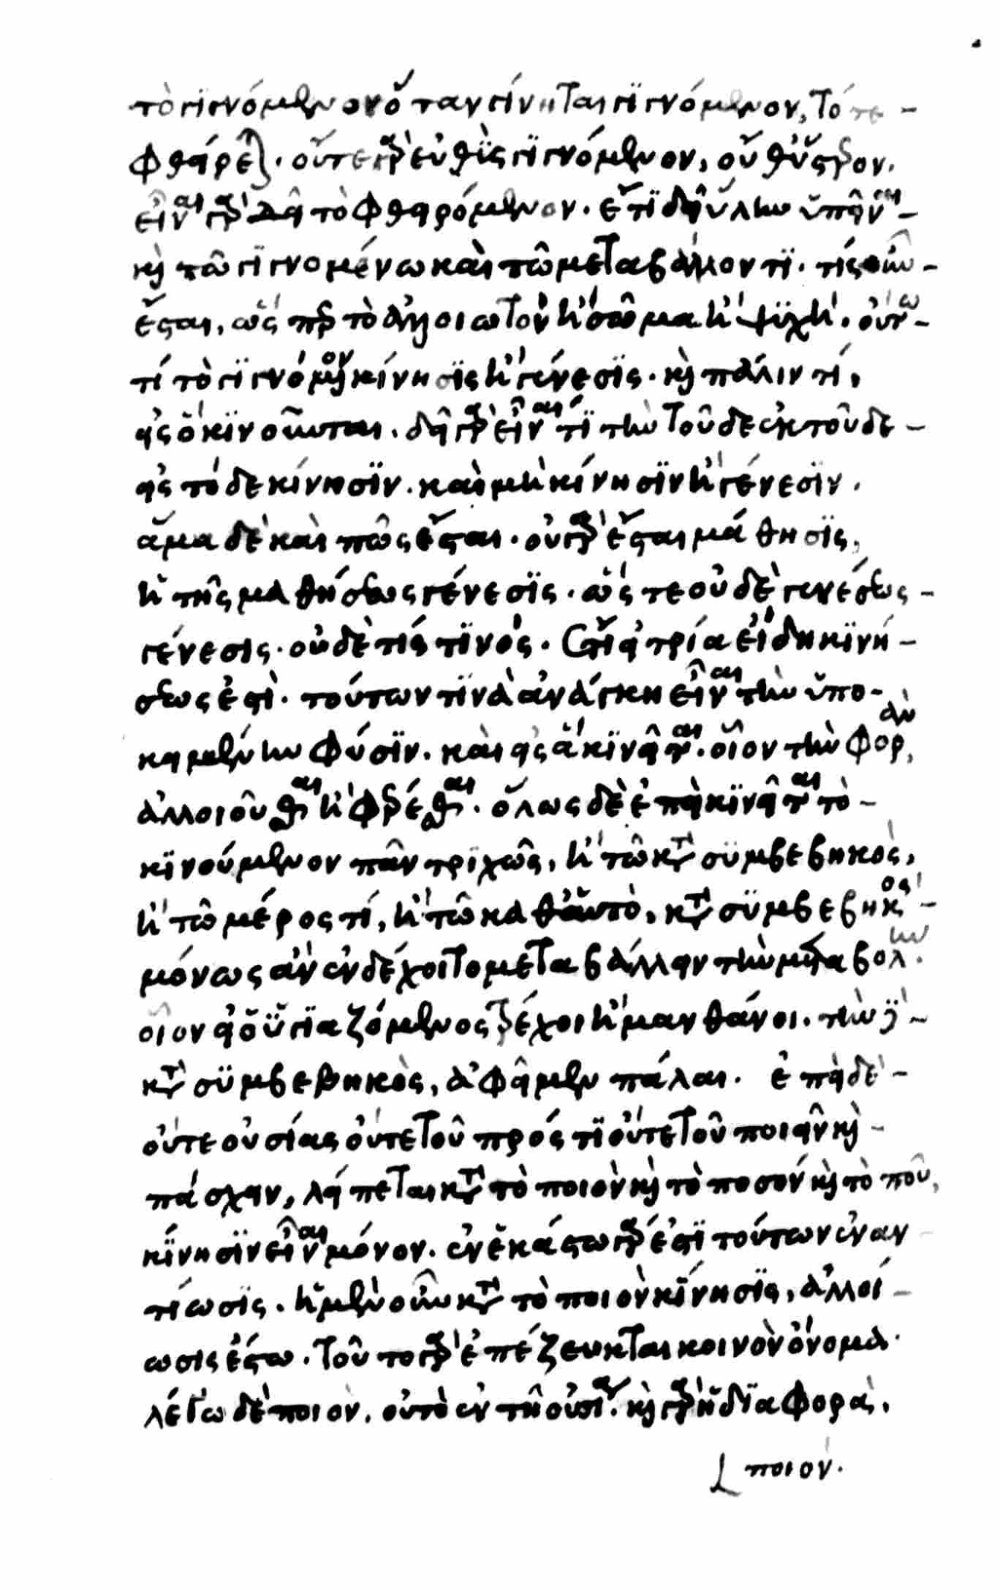 τὸ γιγνόμενον ὅταν γίνηται γιγνόμενον, τότε
φθείρεται. οὔτε γὰρ εὐθὺς γιγνόμενον, οὔθ' ὕστερον.
εἶναι γὰρ δεῖ τὸ φθειρόμενον. ἔτι δεῖ ὕλην ὑπεῖναι
καὶ τῶ γιγνομένω καὶ τῶ μεταβάλλοντι. τίς οὖν
ἔσται, ὥσπερ τὸ ἀλλοιωτὸν ἢ σῶμα ἢ ψυχή. οὕτω
τί τὸ γιγνόμενον κίνησις ἢ γένεσις. καὶ πάλιν τί,
εἰς ὃ κινοῦνται. δεῖ γὰρ εἶναί τι τὴν τοῦδε ἐκ τοῦδε
εἰς τόδε κίνησιν. καὶ μὴ κίνησιν ἢ γένεσιν.
ἅμα δὲ καὶ πῶς ἔσται. οὐ γὰρ ἔσται μάθησις,
ἡ τῆς μαθήσεως γένεσις. ὥστε οὐδὲ γενέσεως
γένεσις. οὐδὲ τίς τινός. ἔτι εἰ τρία εἴδη κινή
σεώς ἐστι. τούτων τινὰ ἀνάγκη εἶναι τὴν ὑπο
κειμένην φύσιν. καὶ εἰς ἃ κινεῖται. οἷον τὴν φορὰν
ἀλλοιοῦσθαι ἢ φέρεσθαι. ὅλως δὲ ἐπεὶ κινεῖται τὸ
κινούμενον πᾶν τριχῶς, ἢ τῶ κατὰ συμβεβηκός,
ἢ τῶ μέρος τί, ἢ τῶ καθαὑτό, κατὰ συμβεβηκὸς
μόνως ἂν ἐνδέχοιτο μεταβάλλειν τὴν μεταβολήν.
οἷον εἰ ὁ ὑγιαζόμενος τρέχοι ἢ μανθάνοι. τὴν δὲ
κατὰ συμβεβηκὸς, ἀφεῖμεν πάλαι. ἐπεὶ δὲ
οὔτε οὐσίας οὔτε τοῦ πρός τι οὔτε τοῦ ποιεῖν καὶ
πάσχειν, λείπεται κατὰ τὸ ποιὸν καὶ τὸ ποσὸν καὶ τὸ ποῦ,
κίνησιν εἶναι μόνον. ἐν ἑκάστω γάρ ἐστι τούτων ἐναν
τίωσις. ἡ μὲν οὖν κατὰ τὸ ποιὸν κίνησις, ἀλλοί
ωσις ἔστω. τοῦτο γὰρ ἐπέζευκται κοινὸν ὄνομα.
λέγω δὲ ποιὸν, οὐ τὸ ἐν τῆ οὐσία. καὶ γὰρ ἡ διαφορὰ,
ποιόν.